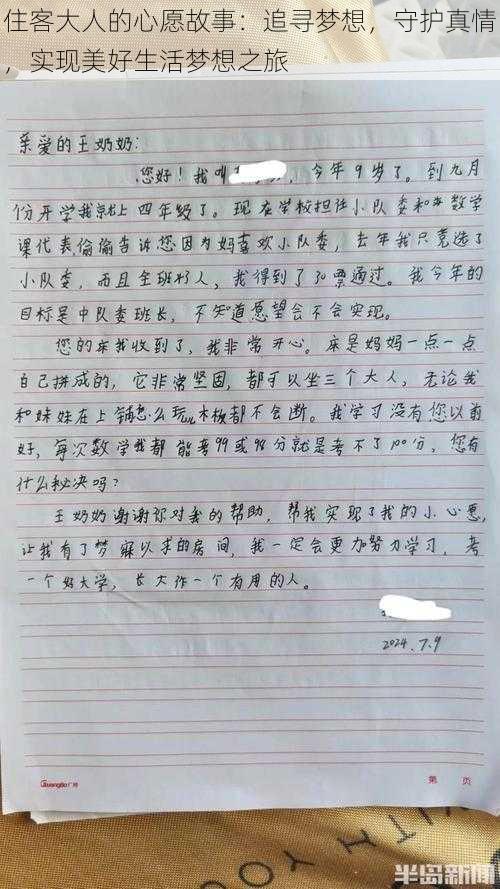 住客大人的心愿故事：追寻梦想，守护真情
，实现美好生活梦想之旅
亲爱的王奶奶：
您好！我叫 ，今年9岁了。到九月
份开学我就上四年级了。现在学校担任小队委和数学
课代表，偷偷告诉您因为妈喜欢小队委，去年我只竞选了
小队委，而且全班43人，我得到了30票通过。我今年的
目标是中队委班长，不知道愿望会不会实现。
您的床我收到了，我非常开心。床是妈妈一点一点
自己拼成的，它非常坚固，都可以坐三个大人，无论我
和妹妹在上铺怎么玩，木板都不会断。我学习没有您以前
好，每次数学我都能考99或98分就是考不了100分，您有
什么秘决吗？
王奶奶谢谢你对我的帮助，帮我实现了我的小心愿，
让我有了梦寐以求的房间，我一定会更加努力学习，考
一个好大学，长大作一个有用的人。
2024.7.9
Guangbo广博
第 页
WITH YOU
半岛新闻